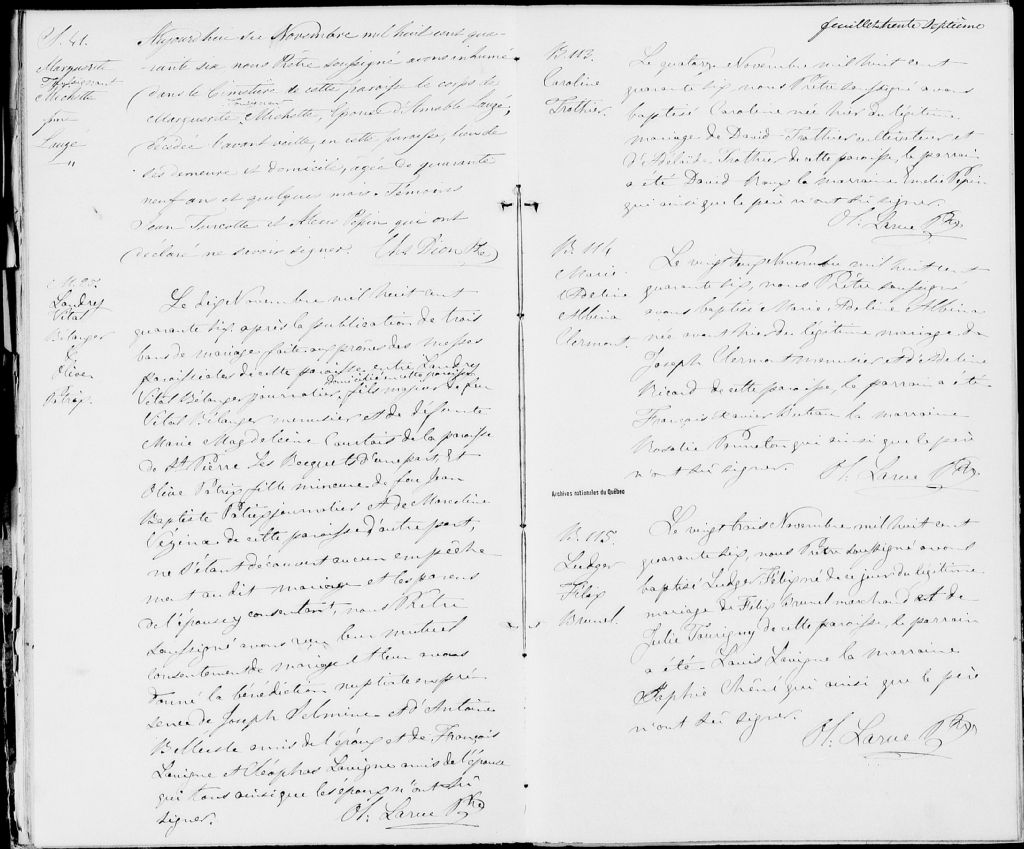 S. 41.
Marguerite
Faisennant
Michette
épse
Lauzé
"
Aujourdhui six Novembre mil huit cent qua-
-rante six nous Prêtre soussigné avons inhumé
dans le Cimetière de cette paroisse le corps de
Marguerite Michette, Epouse d'Amable Lauzé,
décédée l'avant veille, en cette paroisse, lieu de
ses demeure et domicile, agée de quarante
neuf ans et quelques mois. Témoins
Jean Turcotte et Alexis Pepin qui ont
déclaré ne savoir signer. Chs Dion Ptre
M. 27.
Landry
Vital
Bélanger
&
Olive
Pétrix.
Le dix Novembre mil huit cent
quarante six après la publication de trois
bans de mariage faite aux prônes des messes
paroissiales de cette paroisse entre Landry
domicilié en cette paroisse
Vital Bélanger journalier, fils majeur de feu
Vital Bélanger menuisier et de défunte
Marie Magdeleine Courtois de la paroisse
de St Pierre Les Becquets d'une part, Et
Olive Pétrix fille mineure de feu Jean
Baptiste Pétrix journalier et de Marceline
Vézina de cette paroisse d'autre part,
ne s'étant découvert aucun empêche
ment au dit mariage et les parens
de l'épouse y consentant, nous Prêtre
soussigné avons reçu leur mutuel
consentement de mariage et leur avons
donné la bénédiction nuptiale en pré
sence de Joseph et d'Antoine
Belleisle amis de l'époux et de François
Lavigne et Cléophas Lavigne amis de l'épouse
qui tous ainsi que les époux n'ont sû
signer. Ol: Larue Ptre
feuillet trente septième
B. 113.
Caroline
Trothier.
Le quatorze Novembre mil huit cent
quarante six, nous Prêtre soussigné avons
baptisé Caroline née hier du légitime
mariage de David Trothier cultivateur et
d'Adéline Trothier de cette paroisse, le parrain
a été David Roux la marraine Emelie Pepin
qui ainsi que le père n'ont su signer.
Ol. Larue Ptre
B. 114
Marie
Adeline
Albina
Clermont.
Le vingt deux Novembre mil huit cent
quarante six, nous Prêtre soussigné
avons baptisé Marie Adeline Albina
née avant hier du légitime mariage de
Joseph Clermont menuisier et d'Adeline
Ricard de cette paroisse, le parrain a été
François Xavier la marraine
Rosalie Bruneton qui ainsi que le père
n'ont su signer. Ol. Larue Ptre
Archives nationales du Québec
B. 115.
Ludger
Félix
Brunel.
Le vingt trois Novembre mil huit cent
quarante six, nous Prêtre soussigné avons
baptisé Ludger Félix né de ce jour du légitime
mariage de Félix Brunel marchand et de
Julie Tourigny de cette paroisse, le parrain
a été Louis Lavigne la marraine
Sophie Chêné qui ainsi que le père
n'ont su signer.
Ol. Larue Ptre